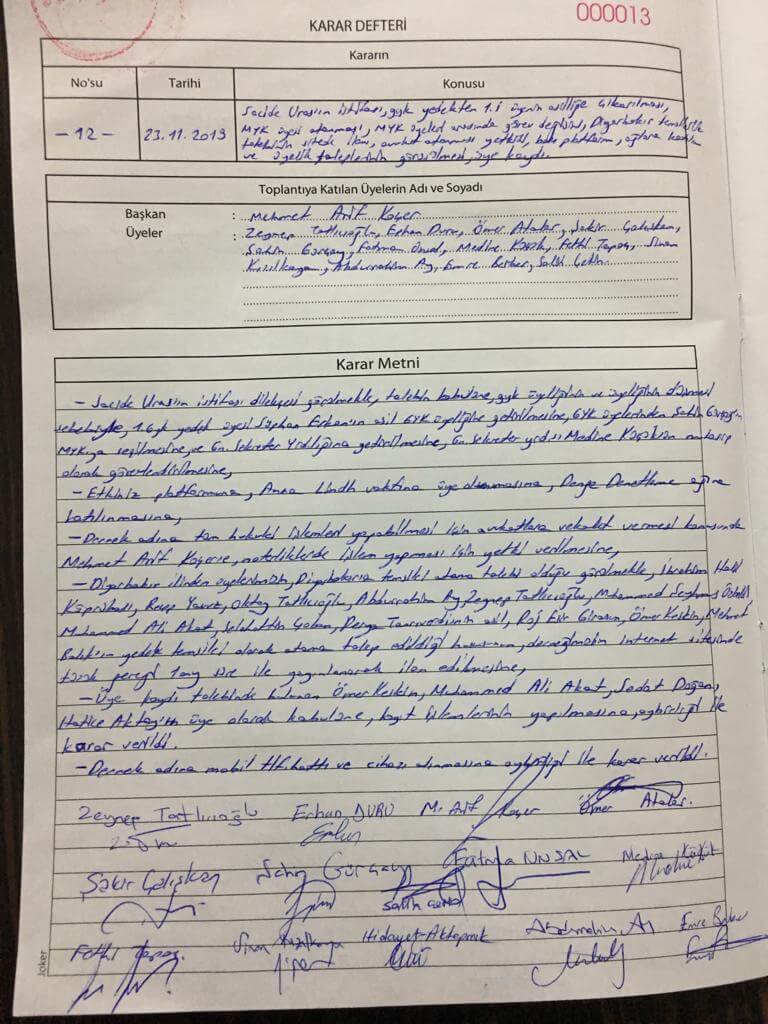 000013
KARAR DEFTERİ
Kararın
No'su Tarihi Konusu
-12- 23.11.2019 Sacide Uras'ın istifası, gyk yedekten 1.i üyenin asilliğe çıkarılması,
MYK üyesi atanması, MYK üyeleri arasında görev değişimi, Diyarbakır temsilcilik
talebinin sitede ilanı, avukat atanması yetkisi, bazı platform, ağlara katılım
ve üyelik taleplerinin görüşülmesi, üye kaydı.
Toplantıya Katılan Üyelerin Adı ve Soyadı
Başkan : Mehmet Arif Koçer
Üyeler : Zeynep Tatlıcıoğlu, Erhan Duru, Ömer Atalar, Şakir Çalışkan,
Şahin Gürçay, Fatma Ünsal, Medine Fethi Sinan
Kızılkaya, Abdurrahim Ay, Emre Berber, Salih Çetin.
Karar Metni
- Sacide Uras'ın istifası dilekçesi görülmekle, talebin kabulüne, gyk üyeliğinin ve üyeliğinin düşmesi
sebebiyle, 1. gyk yedek üyesi Erkan'ın asil GYK üyeliğine getirilmesine, GYK üyelerinden Şahin Gürçay'ın
MYK'ya seçilmesine, ve Gn. Sekreter Yrdlığına getirilmesine, Gn. Sekreter yrdsı Medine
olarak görevlendirilmesine,
- Etkiniz platformuna, Anna Lindh vakfına üye olunmasına, Denge Denetleme ağına
katılınmasına,
- Dernek adına tüm hukuki işlemleri yapabilmesi için avukatlara vekalet vermesi konusunda
Mehmet Arif Koçer'e, noterliklerde işlem yapması için yetki verilmesine,
- Diyarbakır ilinden üyelerimizin, Diyarbakıra temsilci atama talebi olduğu görülmekle, İbrahim Halil
Köprübaşı, Recep Yavuz, Oktay Tatlıcıoğlu, Abdurrahim Ay, Zeynep Tatlıcıoğlu, Muhammed Seyhmus
Muhammed Ali Akat, Selahattin Çoban, Derya Tanrıverdinin asil, Ömer Keskin, Mehmet
yedek temsilci olarak atama talep edildiği hususunun, derneğimizin internet sitesinde
tüzük gereği 1 ay süre ile yayınlanarak ilan edilmesine,
- Üye kaydı talebinde bulunan Ömer Keskin, Muhammed Ali Akat, Sedat Doğan,
Hatice Aktay'ın üye olarak kabulüne, kayıt işlemlerinin yapılmasına, oybirliği ile
karar verildi.
- Dernek adına mobil tlf. hattı ve cihazı alınmasına oybirliği ile karar verildi.
Zeynep Tatlıcıoğlu Erhan DURU M. Arif Koçer Ömer Atalar.
Şakir Çalışkan Şahin Gürçay Fatma ÜNSAL Medine
Salih Çetin
Fethi Sinan Kızılkaya Hidayet Aktoprak Abdurrahim Ay Emre Berber
Joker